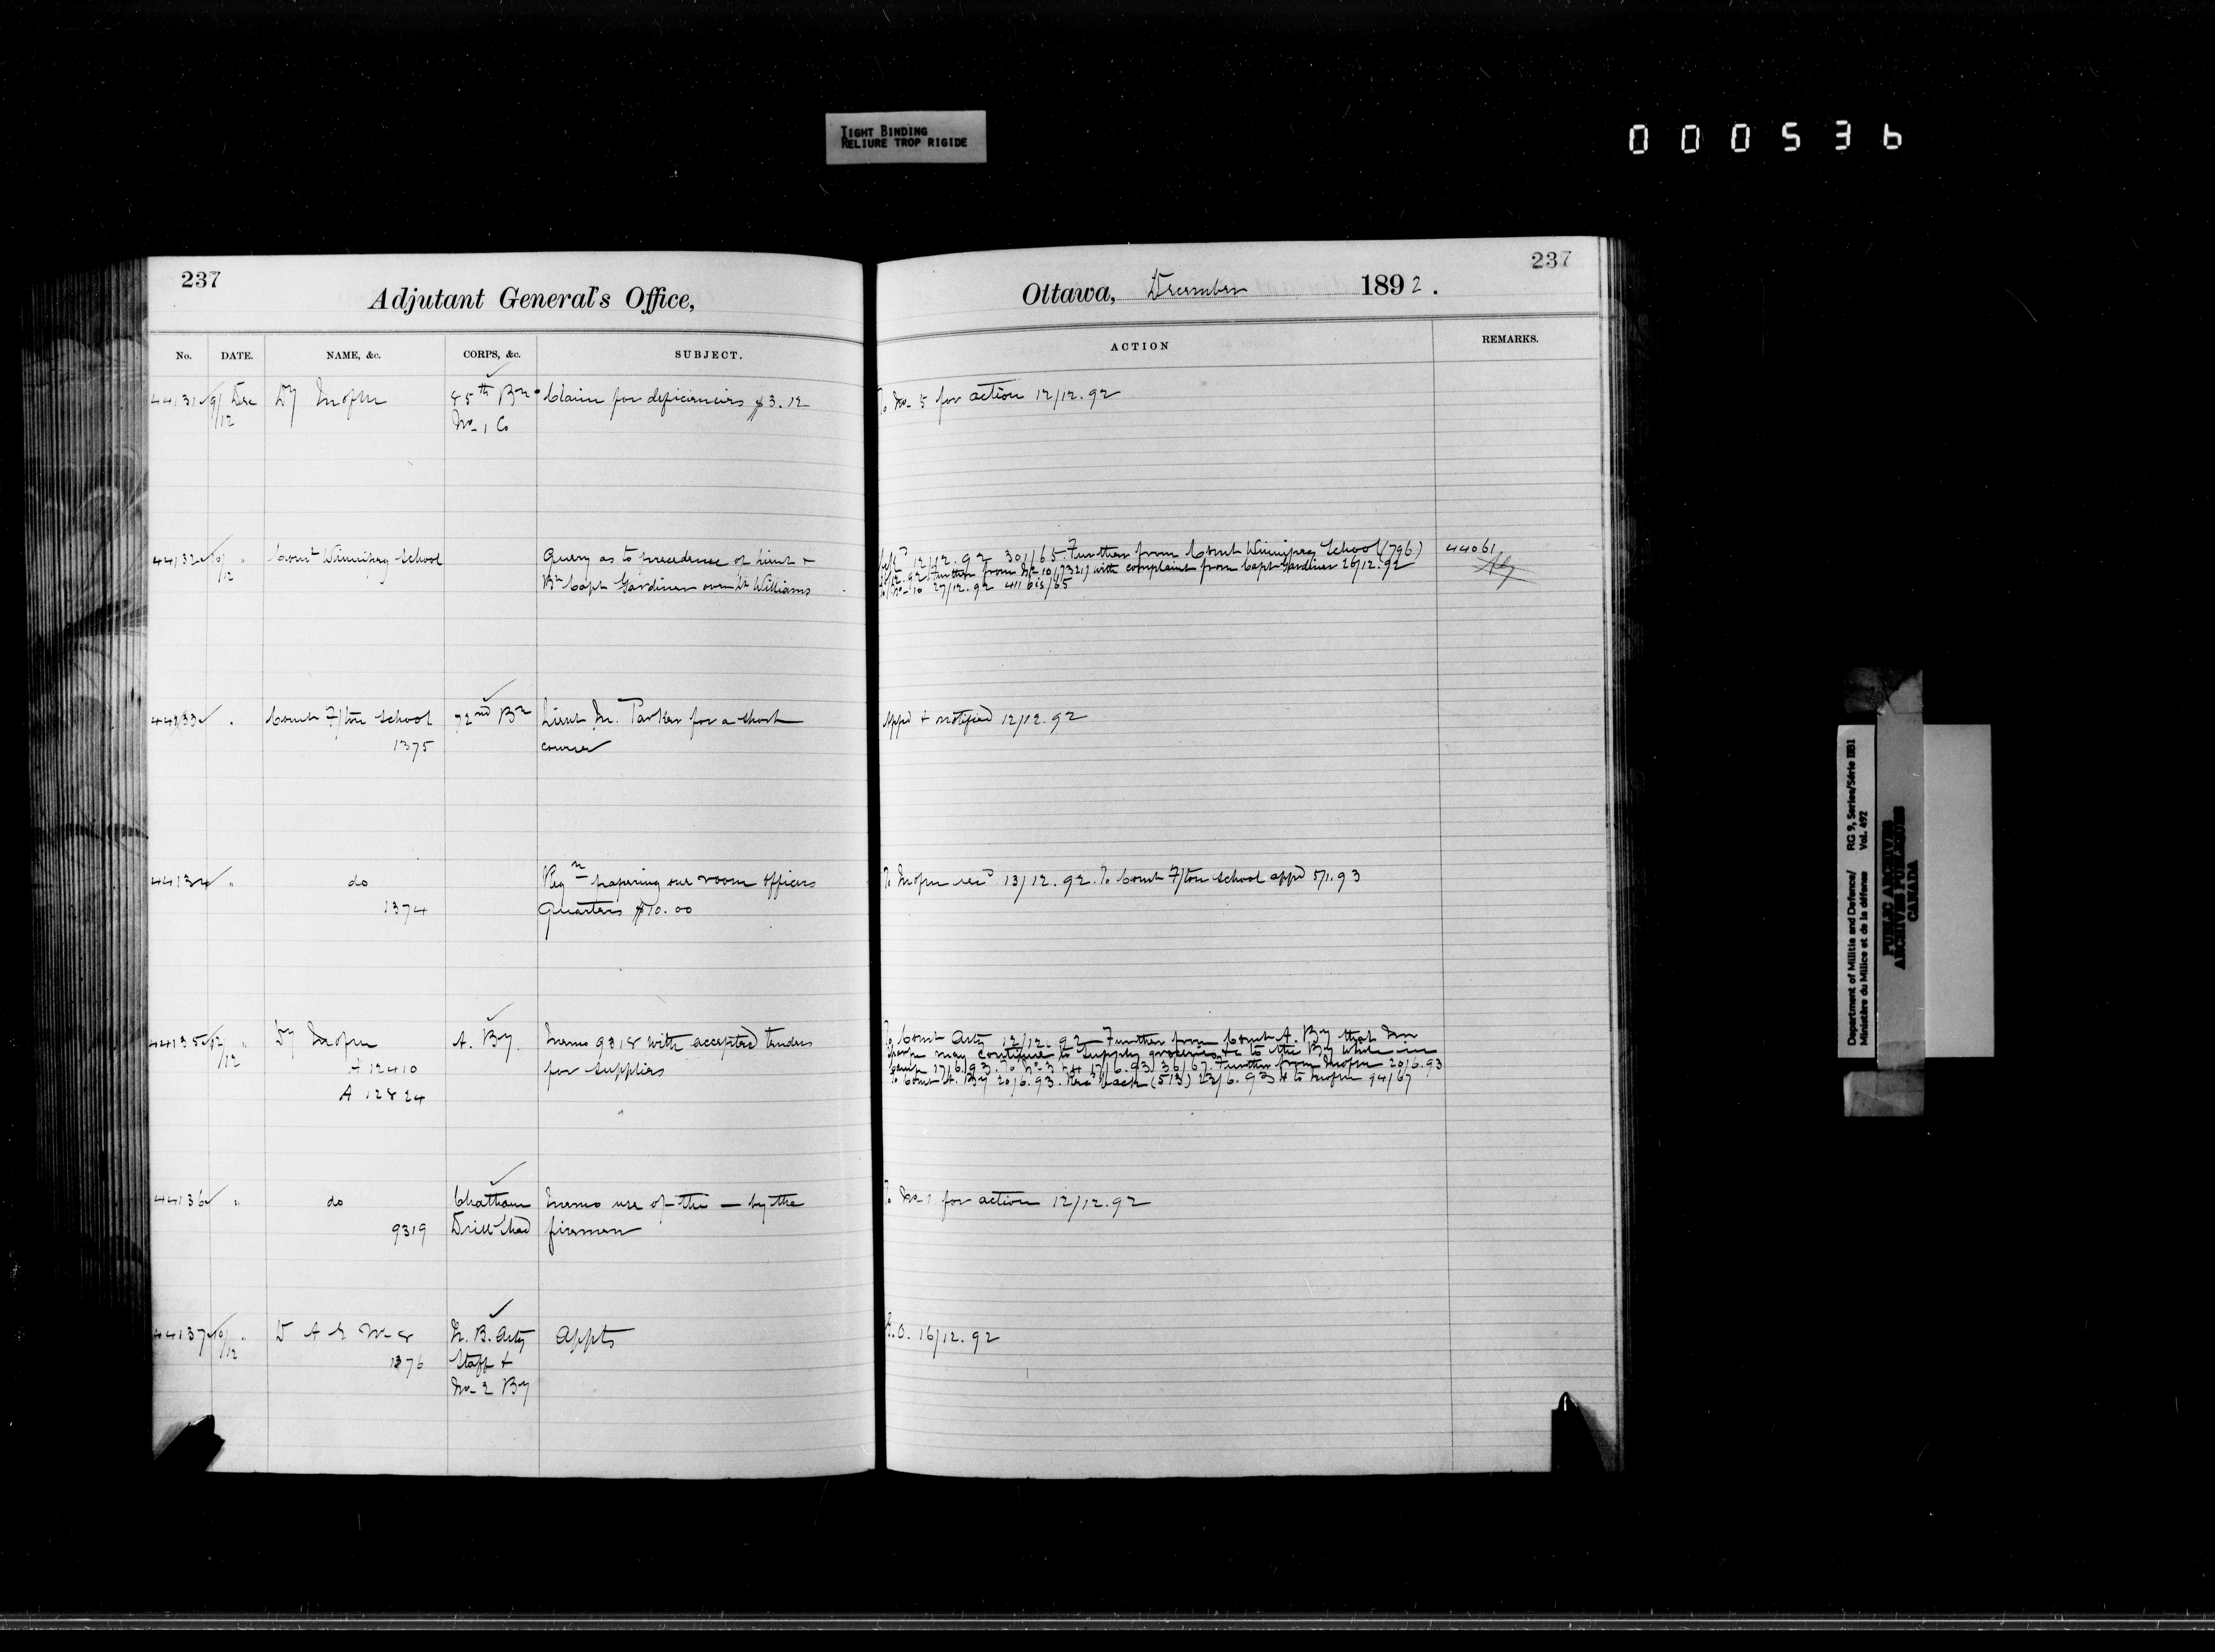 TIGHT BINDING
RELIURE TROP RIGIDE
000536
237
Adjutant General's Office,
Ottawa, December 1892.
237
No. DATE. NAME, &c. CORPS, &c. SUBJECT. ACTION REMARKS.
44131 9/12 Dec Dy 85th Bn Claim for deficiencies $3.12 To No 5 for action 12/12.92
No 1 Co
44132 10/12 " Comt Winnipeg School Query as to precedence of Lieut & 12/12.92 301/65 Further from Comt Winnipeg School (796) 44061
Bt Capt Gardiner over Lt Williams 12.92 Further from No 10 (7321) with complaint from Capt Gardiner 26/12.92
To No 10 27/12.92 411 bis/65
44133 " Comt F/ton School 72nd Bn Lieut M. Parker for a short Appd & notified 12/12.92
1375 course
44134 " do Reqn papering one room officers 13/12.92. To Comt F/ton School appd 5/1.93
1374 Quarters $10.00
44135 12/12 " Dy A. By Memo 9318 with accepted tenders To Comt Arty 12/12.92 Further from Comt A. By that Mr
A 12410 for supplies may continue to supply groceries &c to the By while in
A 12824 Camp 17/6.93. To No 3 17/6.93 36/67. Further from 20/6.93
To Comt A. By 20/6.93. Recd back (513) 23/6.93 & to 94/67
44136 " do Chatham Memo use of the — by the To No 1 for action 12/12.92
9319 Drill Shed firemen
44137 10/12 " D A G No 8 N. B. Arty Appts G.O. 16/12.92
1376 Staff &
No 2 By
Department of Militia and Defence/ RG 9, Series/Série IIB1
Ministère du Milice et de la défense Vol. 492
PUBLIC ARCHIVES
ARCHIVES PUBLIQUES
CANADA